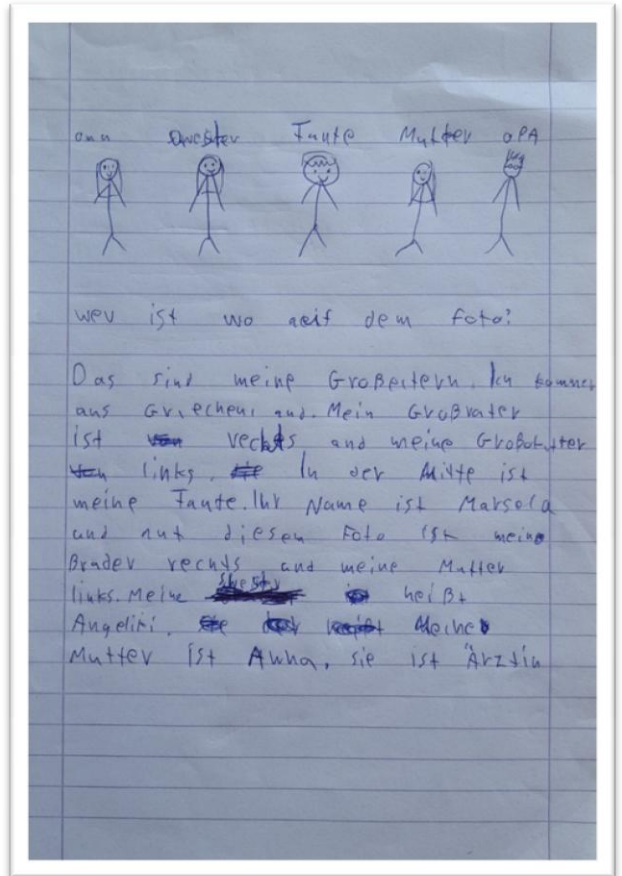 onn Swester Taute Mutter oPA
wer ist wo auf dem Foto?
Das sind meine Großeltern. Ich komme
aus Griechenland. Mein Großvater
ist rechts und meine Großmutter
links. In der Mitte ist
meine Taute. Ihr Name ist Marsela
und auf diesem Foto ist meine
Bruder rechts und meine Mutter
links. Meine heißt
Angeliki. Meine
Mutter ist Anna, sie ist Ärztin